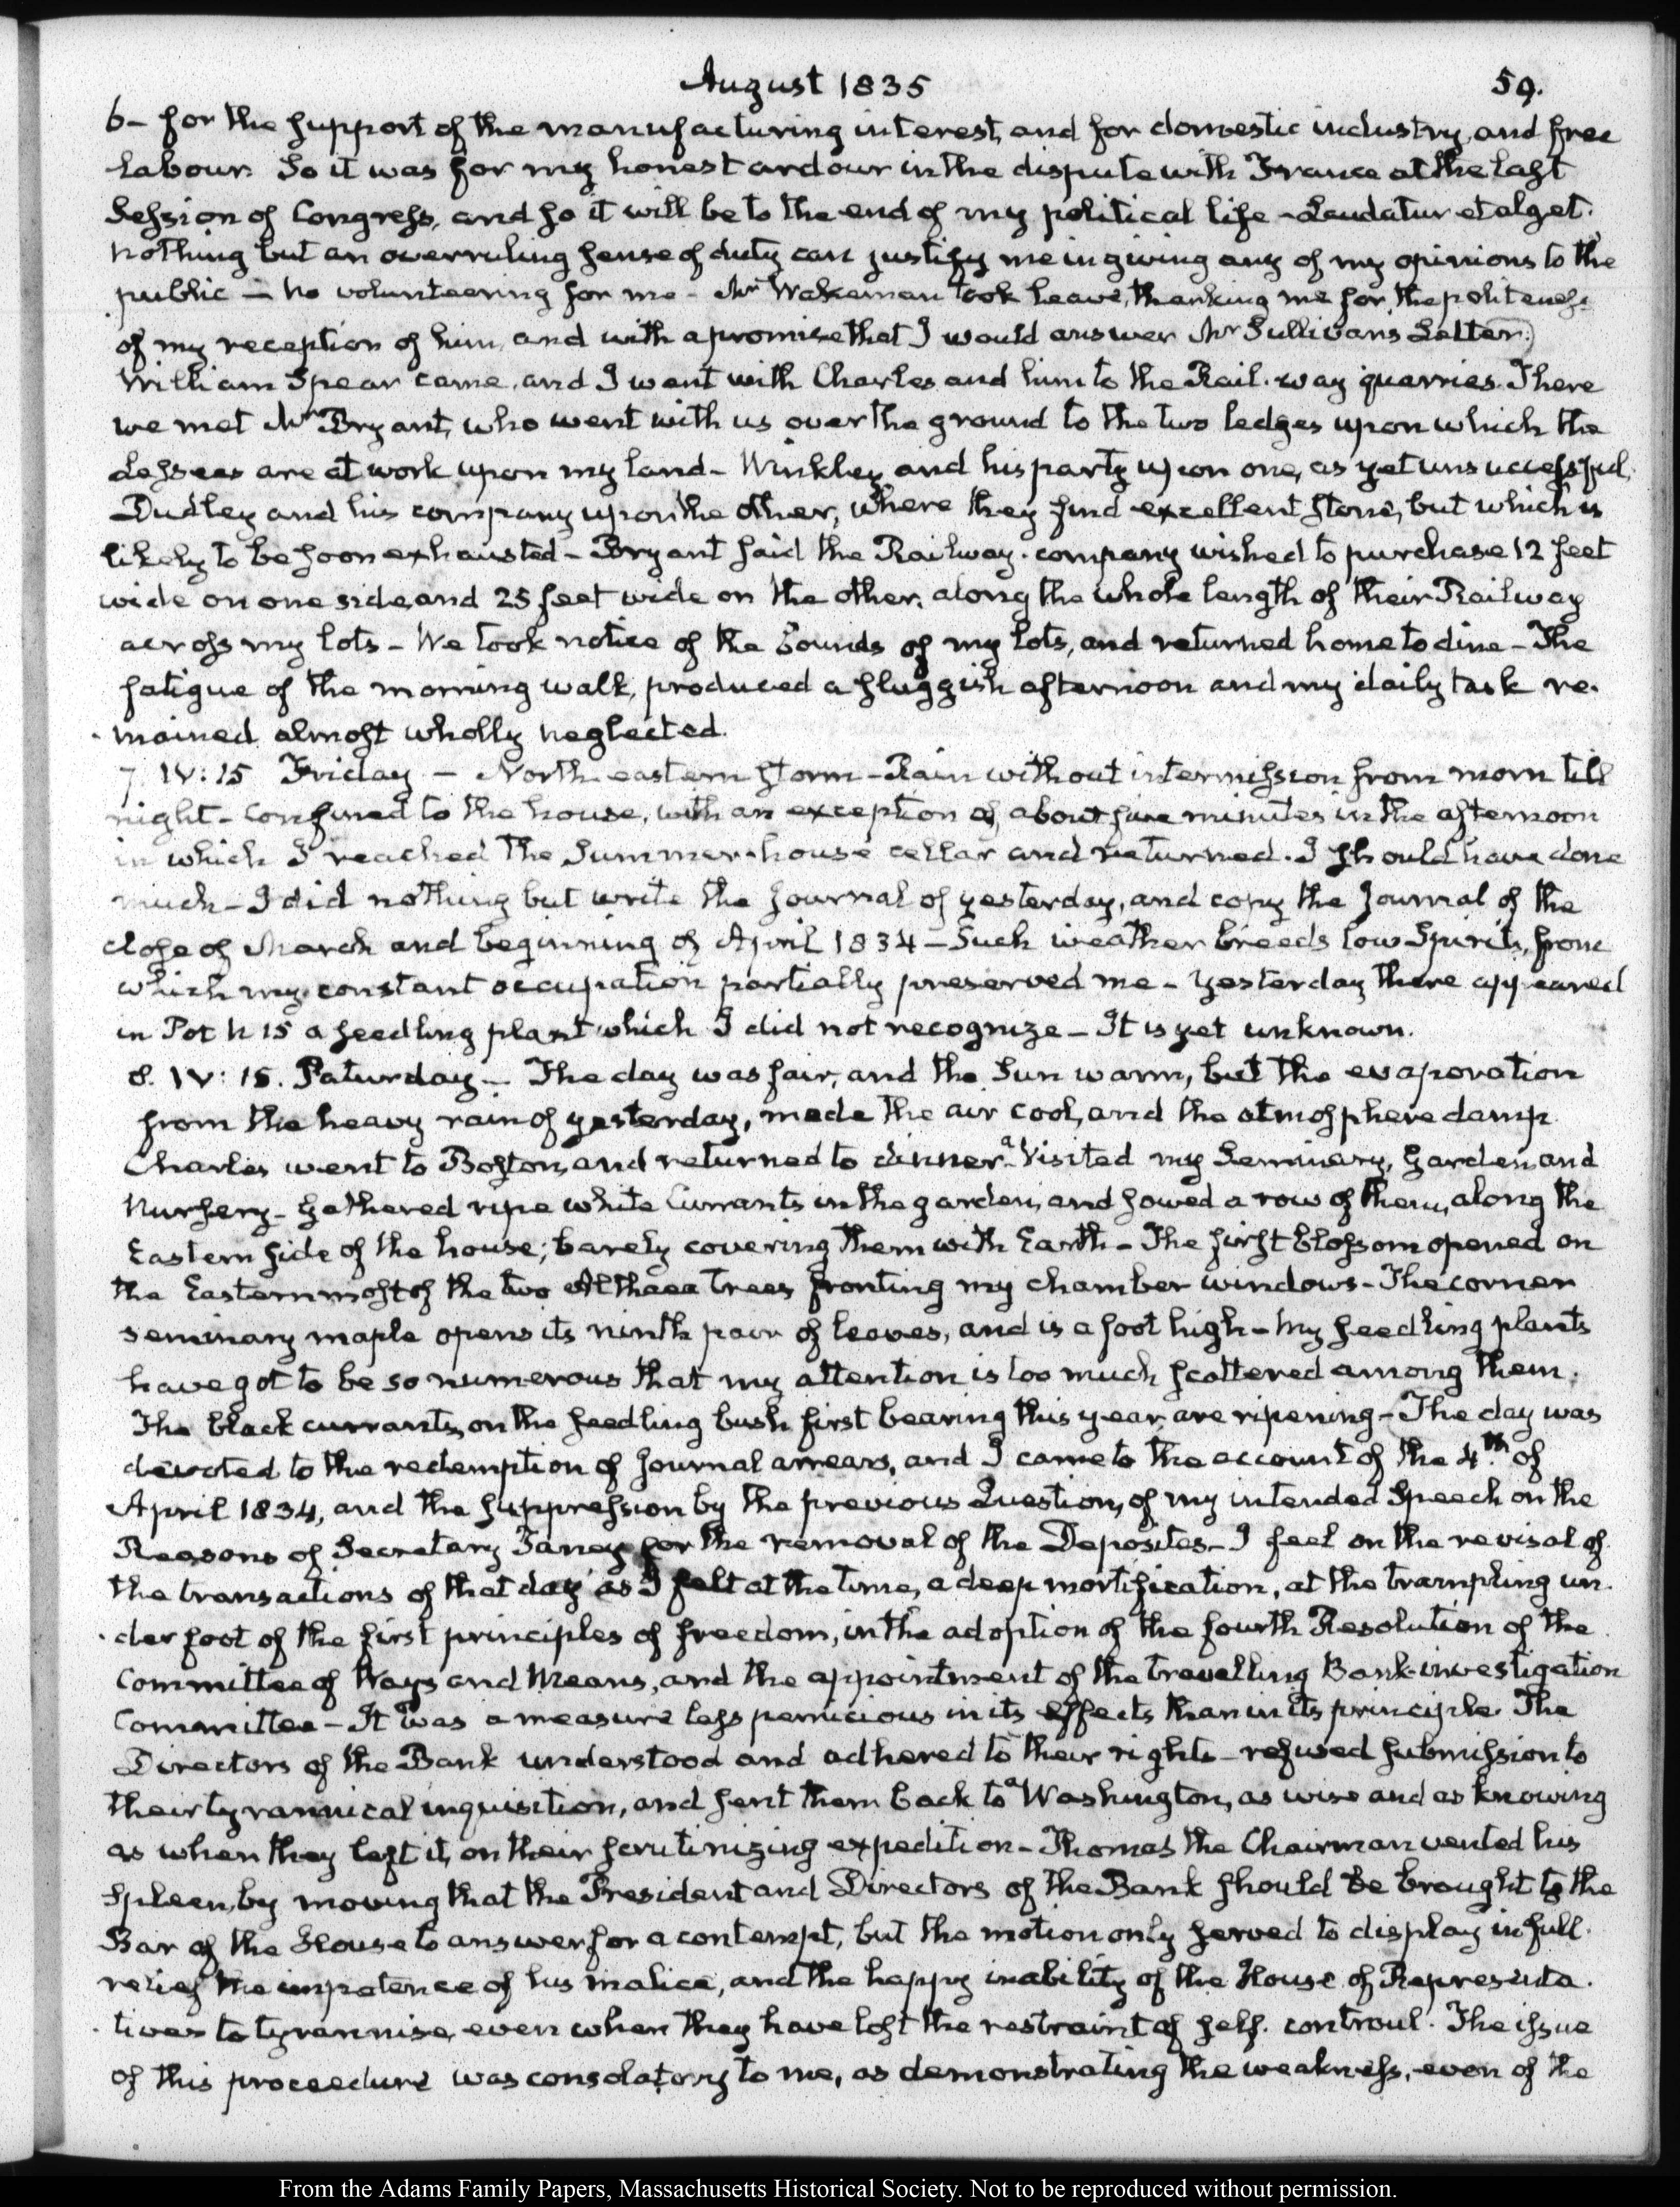 August 1835 59.
6- for the support of the manufacturing interest, and for domestic industry, and free
labour. So it was for my honest ardour in the dispute with France at the last
Session of Congress, and so it will be to the end of my political life - Laudatur et alget.
nothing but an overruling sense of duty can justify me in giving any of my opinions to the
public — no volunteering for me - Mr Wakeman took leave, thanking me for the politeness
of my reception of him, and with a promise that I would answer Mr Sullivan's Letter.
William Spear came, and I went with Charles and him to the Rail-way quarries. There
we met Mr Bryant, who went with us over the ground to the two ledges upon which the
Lessees are at work upon my land - Winkley and his party upon one, as yet unsuccessful,
Dudley and his company upon the other, where they find excellent stone, but which is
likely to be soon exhausted - Bryant said the Railway-company wished to purchase 12 feet
wide on one side, and 25 feet wide on the other, along the whole length of their Railway
across my lots - We took notice of the bounds of my lots, and returned home to dine - The
fatigue of the morning walk, produced a sluggish afternoon and my daily task re-
mained almost wholly neglected.
7. IV:15 Friday — North-eastern storm - Rain without intermission from morn till
night - Confined to the house, with an exception of about five minutes in the afternoon
in which I reached the Summer-house cellar and returned. I should have done
much - I did nothing but write the journal of yesterday, and copy the Journal of the
close of March and beginning of April 1834 - Such weather breeds low Spirits, from
which my constant occupation partially preserved me - Yesterday there appeared
in Pot N 15 a seedling plant which I did not recognize - It is yet unknown.
8. IV:15. Saturday - The day was fair, and the Sun warm, but the evaporation
from the heavy rain of yesterday, made the air cool, and the atmosphere damp.
Charles went to Boston, and returned to dinner. Visited my Seminary, Garden, and
Nursery - Gathered ripe white Currants in the garden, and sowed a row of them, along the
Eastern side of the house; barely covering them with Earth - The first blossom opened on
the Easternmost of the two Althaea trees fronting my chamber windows - The corner
seminary maple opens its ninth pair of leaves, and is a foot high - My seedling plants
have got to be so numerous that my attention is too much scattered among them.
The black currants, on the seedling bush first bearing this year, are ripening - The day was
devoted to the redemption of journal arrears, and I came to the account of the 4th of
April 1834, and the suppression by the previous Question, of my intended Speech on the
Reasons of Secretary Taney for the removal of the Deposites - I feel on the revisal of
the transactions of that day as I felt at the time, a deep mortification, at the trampling un-
der foot of the first principles of freedom, in the adoption of the fourth Resolution of the
Committee of Ways and Means, and the appointment of the travelling Bank-investigation
Committee - It was a measure less pernicious in its effects than in its principle. The
Directors of the Bank understood and adhered to their rights - refused submission to
their tyrannical inquisition, and sent them back to Washington, as wise and as knowing
as when they left it, on their scrutinizing expedition - Thomas the Chairman vented his
spleen, by moving that the President and Directors of the Bank should be brought to the
Bar of the House to answer for a contempt, but the motion only served to display in full
relief the impotence of his malice, and the happy inability of the House of Representa-
tives to tyrannise, even when they have lost the restraint of self-controul. The issue
of this proceedure was consolatory to me, as demonstrating the weakness, even of the
From the Adams Family Papers, Massachusetts Historical Society. Not to be reproduced without permission.